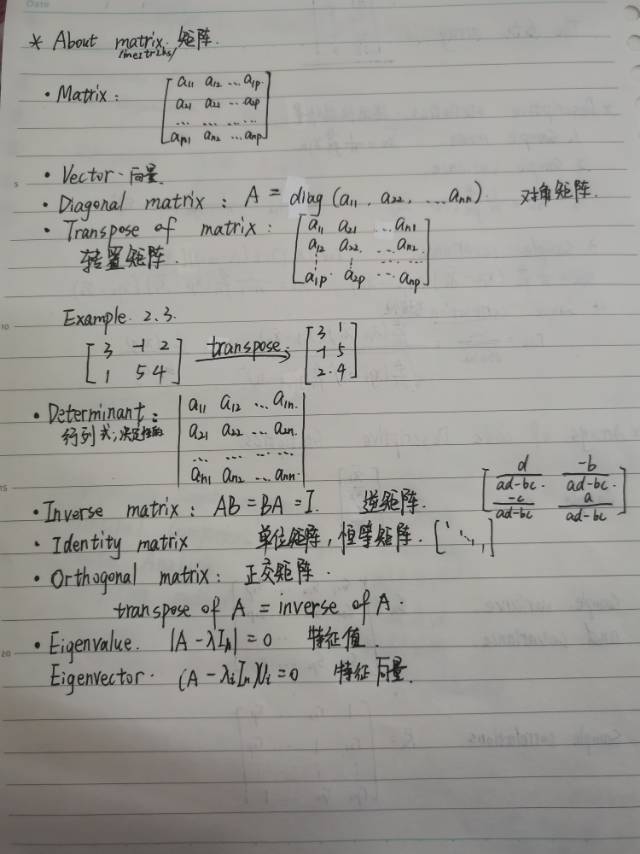 * About matrix. 矩阵.
/meitriks/
• Matrix: [a11 a12 ... a1p.
a21 a22 ... a2p
... ... ... ...
an1 an2 ... anp]
• Vector. 向量.
• Diagonal matrix: A = diag (a11, a22, ... ann) 对角矩阵.
• Transpose of matrix: [a11 a21 ... an1
a12 a22. ... an2.
⋮ ⋮ ... ...
a1p. a2p ... anp]
转置矩阵.
Example. 2.3.
[3 -1 2
1 5 4] transpose → [3 1
-1 5
2 4]
• Determinant: |a11 a12 ... a1n.
a21 a22 ... a2n.
... ... ... ...
an1 an2 ... ann.|
行列式;决定性的
• Inverse matrix: AB = BA = I. 逆矩阵. [d/ad-bc. -b/ad-bc.
-c/ad-bc a/ad-bc]
• Identity matrix 单位矩阵, 恒等矩阵. [1 ⋱ 1]
• Orthogonal matrix: 正交矩阵.
transpose of A = inverse of A.
• Eigenvalue. |A - λIn| = 0 特征值.
Eigenvector. (A - λiIn)Vi = 0 特征向量.